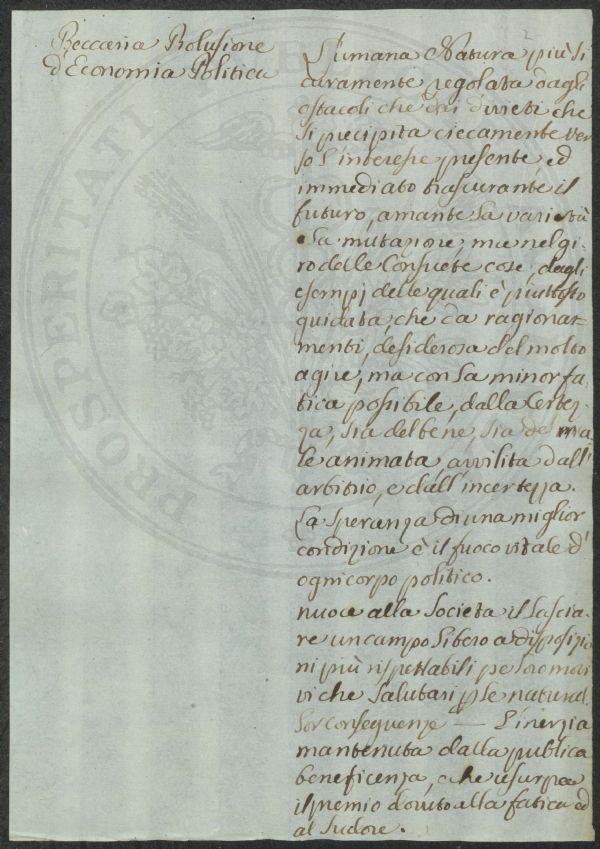 Beccaria Prolusione
d'Economia Politica
L'umana Natura più si
curamente regolata dagli
ostacoli che dai divieti che
si precipita ciecamente ver
so l'interesse presente ed
immediato trascurante il
futuro, amante la varietà
e la mutazione, ma nel gi-
ro delle Consuete cose, dagli
esempj delle quali è piuttosto
guidata, che da ragiona-
menti, desiderosa del molto
agire, ma con la minor fa
tica possibile, dalla Certez
za, sia del bene, sia del ma
le animata, avvilita dall'
arbitrio, e dall'incertezza.
La Speranza di una miglior
condizione è il fuoco vitale d'
ogni corpo politico.
nuoce alla Società il lascia-
re un campo libero a disposizio
ni più rispettabili pe loro moti
vi che salutari p le natural
lor conseguenze — L'inerzia
mantenuta dalla publica
beneficenza, che usurpa
il premio dovuto alla fatica ed
al sudore.
PROSPERITATI